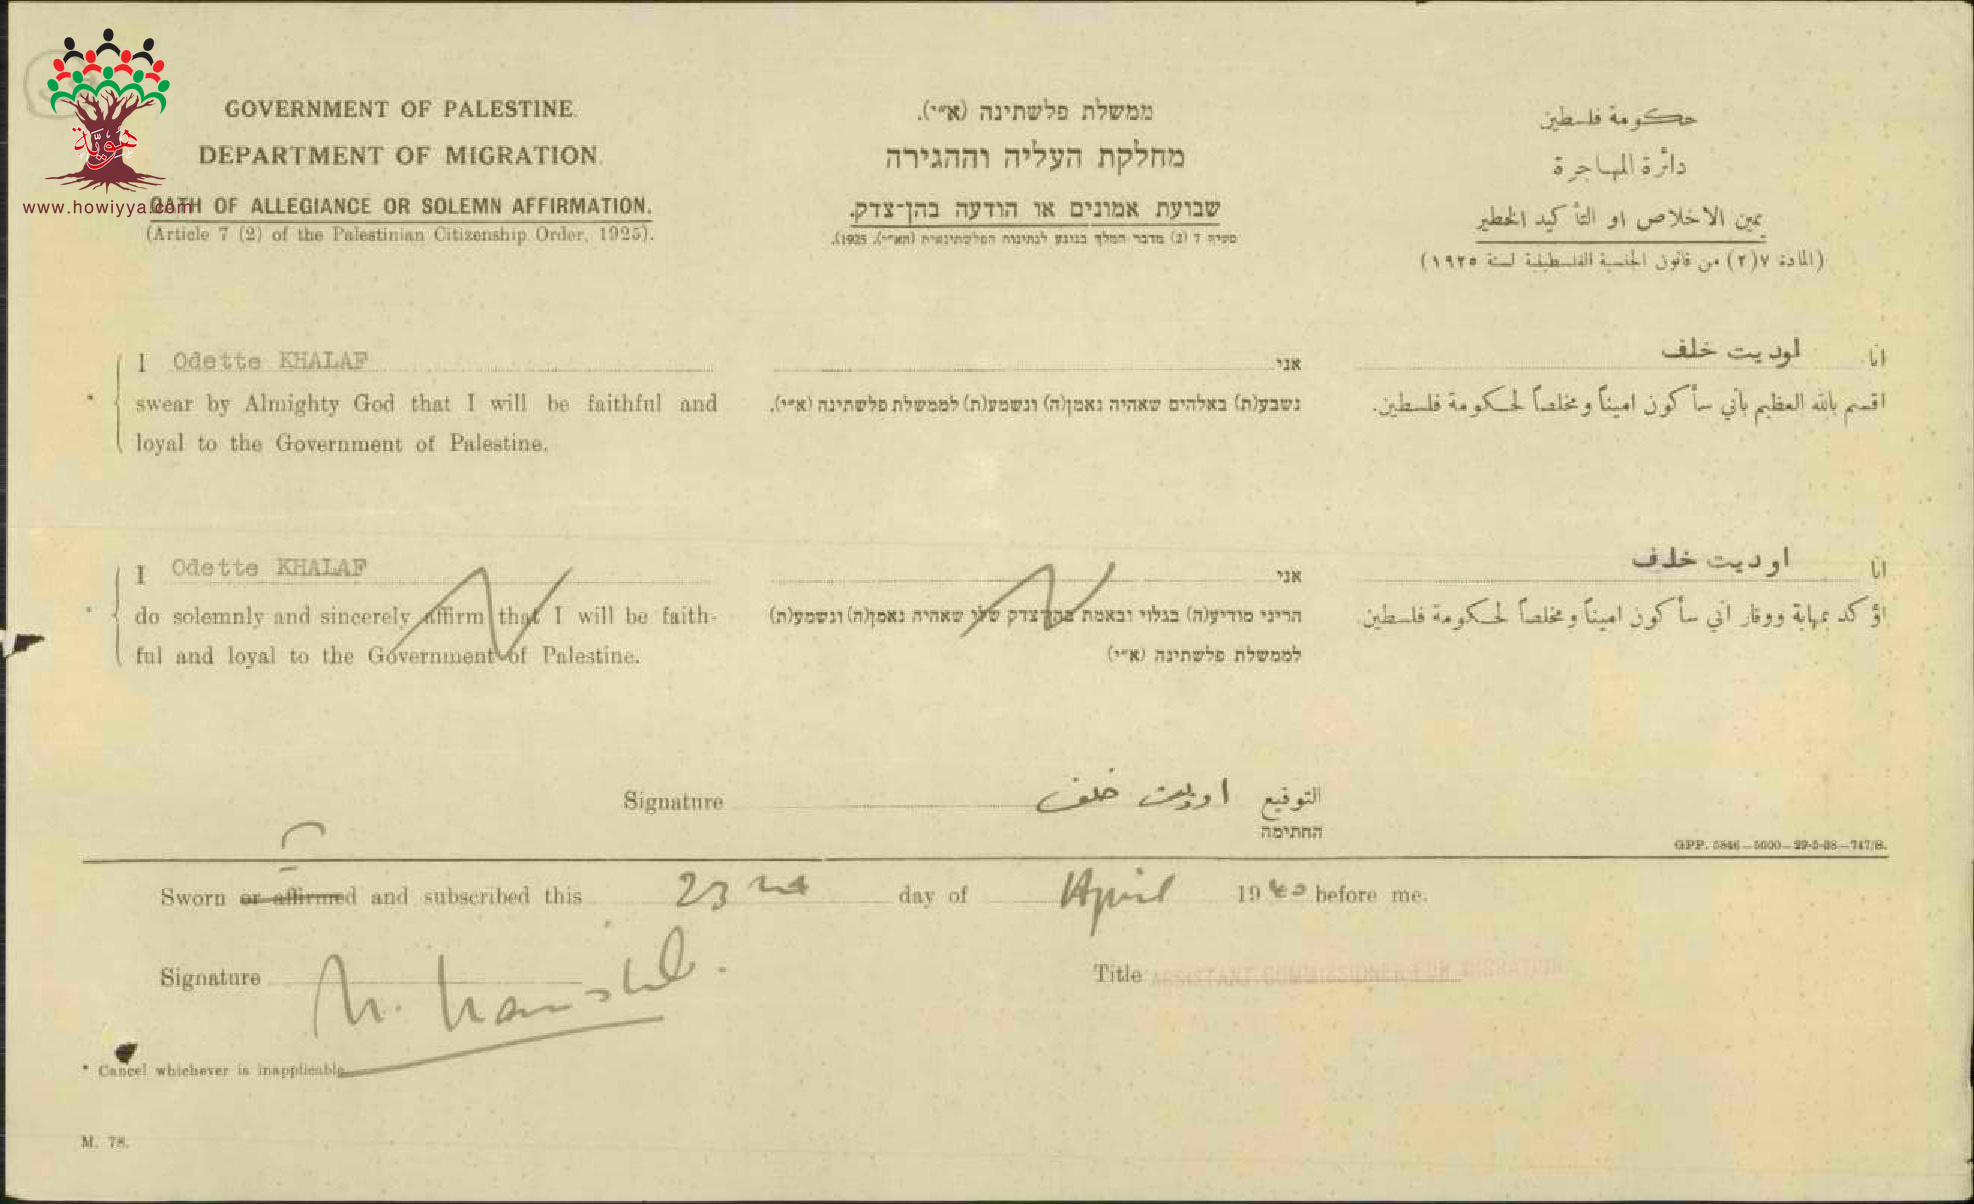 هويّة
www.howiyya.com
GOVERNMENT OF PALESTINE.
DEPARTMENT OF MIGRATION.
OATH OF ALLEGIANCE OR SOLEMN AFFIRMATION.
(Article 7 (2) of the Palestinian Citizenship Order, 1925).
ממשלת פלשתינה (א״י).
מחלקת העליה וההגירה
שבועת אמונים או הודעה בהן־צדק.
סעיף 7 (2) מדבר המלך בנוגע לנתינות הפלשתינאית (הא״י), 1925).
حكومة فلسطين
دائرة المهاجرة
يمين الاخلاص او التأكيد الخطير
(المادة ٧(٢) من قانون الجنسية الفلسطينية لسنة ١٩٢٥)
I Odette KHALAF
* swear by Almighty God that I will be faithful and
loyal to the Government of Palestine.
אני
נשבע(ת) באלהים שאהיה נאמן(ה) ונשמע(ת) לממשלת פלשתינה (א״י).
انا لوديت خلف
اقسم بالله العظيم بأني سأكون اميناً ومخلصاً لحكومة فلسطين.
I Odette KHALAF
* do solemnly and sincerely affirm that I will be faith-
ful and loyal to the Government of Palestine.
אני
הריני מודיע(ה) בגלוי ובאמת בהן צדק שלי שאהיה נאמן(ה) ונשמע(ת)
לממשלת פלשתינה (א״י)
انا اوديت خلف
اؤكد بمهابة ووقار اني سأكون اميناً ومخلصاً لحكومة فلسطين.
Signature اوديت خلف التوقيع
החתימה
GPP. 5846—5000—29-5-38—747/S.
Sworn or affirmed and subscribed this 23rd day of April 1940 before me.
Signature Title ASSISTANT COMMISSIONER FOR MIGRATION
* Cancel whichever is inapplicable.
M. 78.